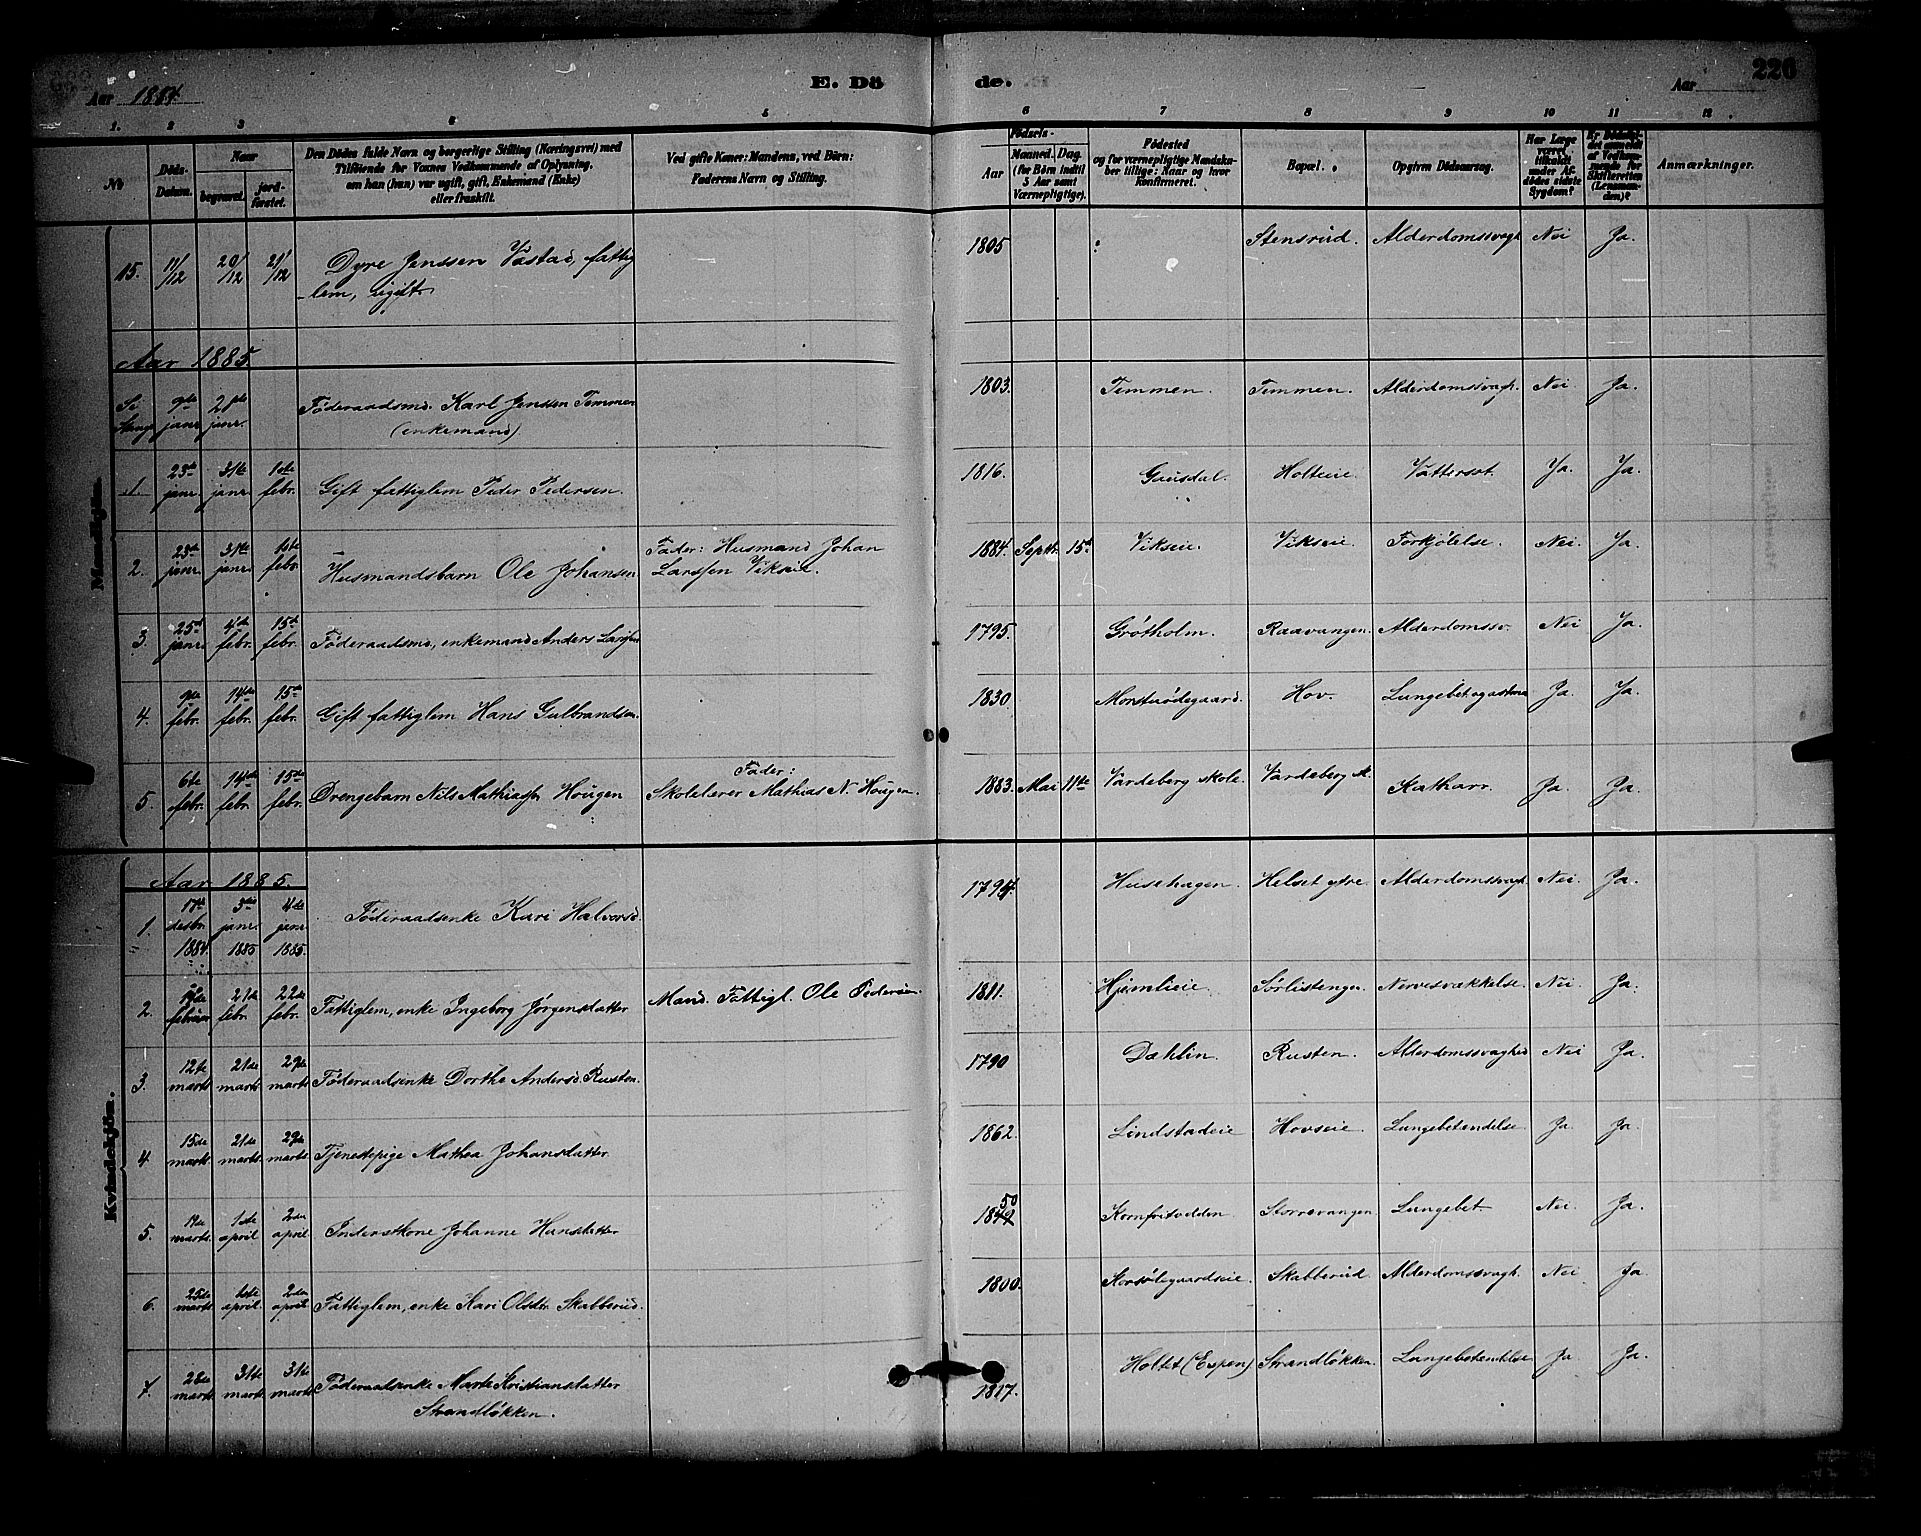 Aar 1884.
E. Dö de.
Aar 226
1. 2 3 4 5 6 7 8 9 10 11 12
No
Döds-Datum.
Naar
begravet.
jord-fæstet.
Den Dödes fulde Navn og borgerlige Stilling (Næringsvei) med
Tilföiende for Voxnes Vedkommende af Oplysning,
om han (hun) var ugift, gift, Enkemand (Enke)
eller fraskilt.
Ved gifte Koner: Mandens, ved Börn:
Faderens Navn og Stilling.
Födsels-
Aar
Maaned. Dag.
(for Börn indtil
5 Aar samt
Værnepligtige).
Födested
og for værnepligtige Mandska-
ber tillige: Naar og hvor
konfirmeret.
Bopæl.
Opgiven Dödsaarsag.
Har Læge
været
tilkaldt
under Af-
dödes sidste
Sygdom?
Er Dödsfal-
det anmeldt
af Vedkom-
mende for
Skifteretten
(Lensman-
den)?
Anmærkninger.
Mandkjön.
15. 11/12 20/12 21/12 Dyre Jenssen Vastad, fattig 1805 Stensrud. Alderdomssvagh Nei Ja.
-lem, ugift
Aar 1885.
9de janr. Föderaadsmd. Karl Jenssen Temmen 1803. Temmen. Temmen. Alderdomssvagh. Nei Ja.
(enkemand)
1 23de janr. 31te janr. 1ste febr. Gift fattiglem Peder Pedersen. 1816. Gausdal. Holteie. Vattersot. Ja. Ja.
2. 23de janr. 31te janr. 1ste febr. Husmandsbarn Ole Johansen Fader: Husmand Johan 1884. Septbr. 15de Vikseie. Vikseie. Forkjölelse. Nei. Ja.
Larssen Vikseie.
3. 25de janr. 4de febr. 15de febr. Föderaadsmd, enkemand Anders Larssen 1795. Gröthholm. Raavangen. Alderdomssv. Nei Ja.
4. febr. 14de febr. 15de febr. Gift fattiglem Hans Gulbrandsen. 1830. Hov. Lungebet. og astma Ja. Ja.
5. 6te febr. 14de febr. 15de febr. Drengebarn Nils Mathiassen Hougen Fader: 1883. Mai 11te Vardeberg skole. Vardeberg sk. Katharr. Ja. Ja.
Skolelærer Mathias N. Hougen.
Kvindekjön.
Aar 1885.
1. 17de desbr. 1884. 3die janr. 1885 4de janr. 1885. Föderaadsenke Kari Halvorsd. 1794. Husehagen. Helset övre. Alderdomssvagh. Nei. Ja.
2. februar 21de febr. 22de febr. Fattiglem, enke Ingeborg Jörgensdatter Mand. Fattigl. Ole Pedersen. 1811. Hjemlieie. Sörlistengen. Nervesvækkelse. Nei. Ja.
3. 12te marts 21de marts. 29de marts Föderaadsenke Dorthe Andersd. Rusten. 1790 Dæhlin. Rusten. Alderdomssvaghed Nei Ja.
4. 15de marts. 21de marts. 29de marts Tjenestepige Mathea Johansdatter 1862. Lindstadeie Hovseie. Lungebetændelse. Ja. Ja.
5. marts. 1ste april 2den april Inderstkone Johanne Hansdatter 1849 50 Storrevangen Lungebet. Nei. Ja.
6. 25de marts 1ste april. 2den april Fattiglem, enke Kari Olsdtr Skabberud. 1800. Korsölegaardseie. Skabberud. Alderdomssvagh. Nei Ja.
7. 28de marts. 31te marts 31te marts Föderaadsenke Marte Kristiansdatter 1817. Holtet (Espen) Strandlökken. Lungebetændelse Ja. Ja.
Strandlökken.